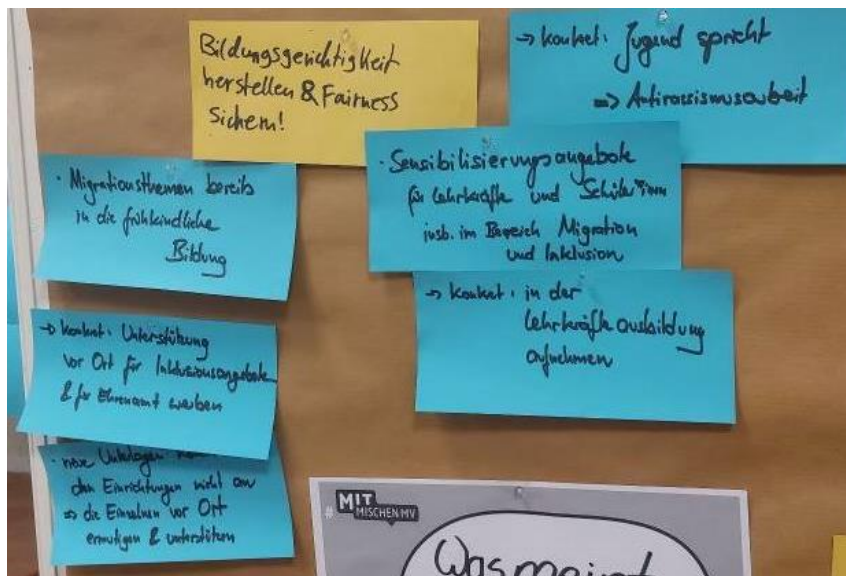 Bildungsgerichtigkeit
herstellen & Fairness
Sichern!
-> konkret: Jugend spricht
=> Antirassismusarbeit
· Migrationsthemen bereits
in die frühkindliche
Bildung
· Sensibilisierungsangebote
für Lehrkräfte und Schüler*inn
insb. im Bereich Migration
und Inklusion
-> konkret: in der
Lehrkräfteausbildung
aufnehmen
-> konkret: Unterstützung
vor Ort für Inklusionsangebote
& für Ehrenamt werben
· neue Unterlagen
den Einrichtungen nicht an
=> die Einzelnen vor Ort
ermutigen & unterstützen
# MIT
MISCHEN MV
Was meint